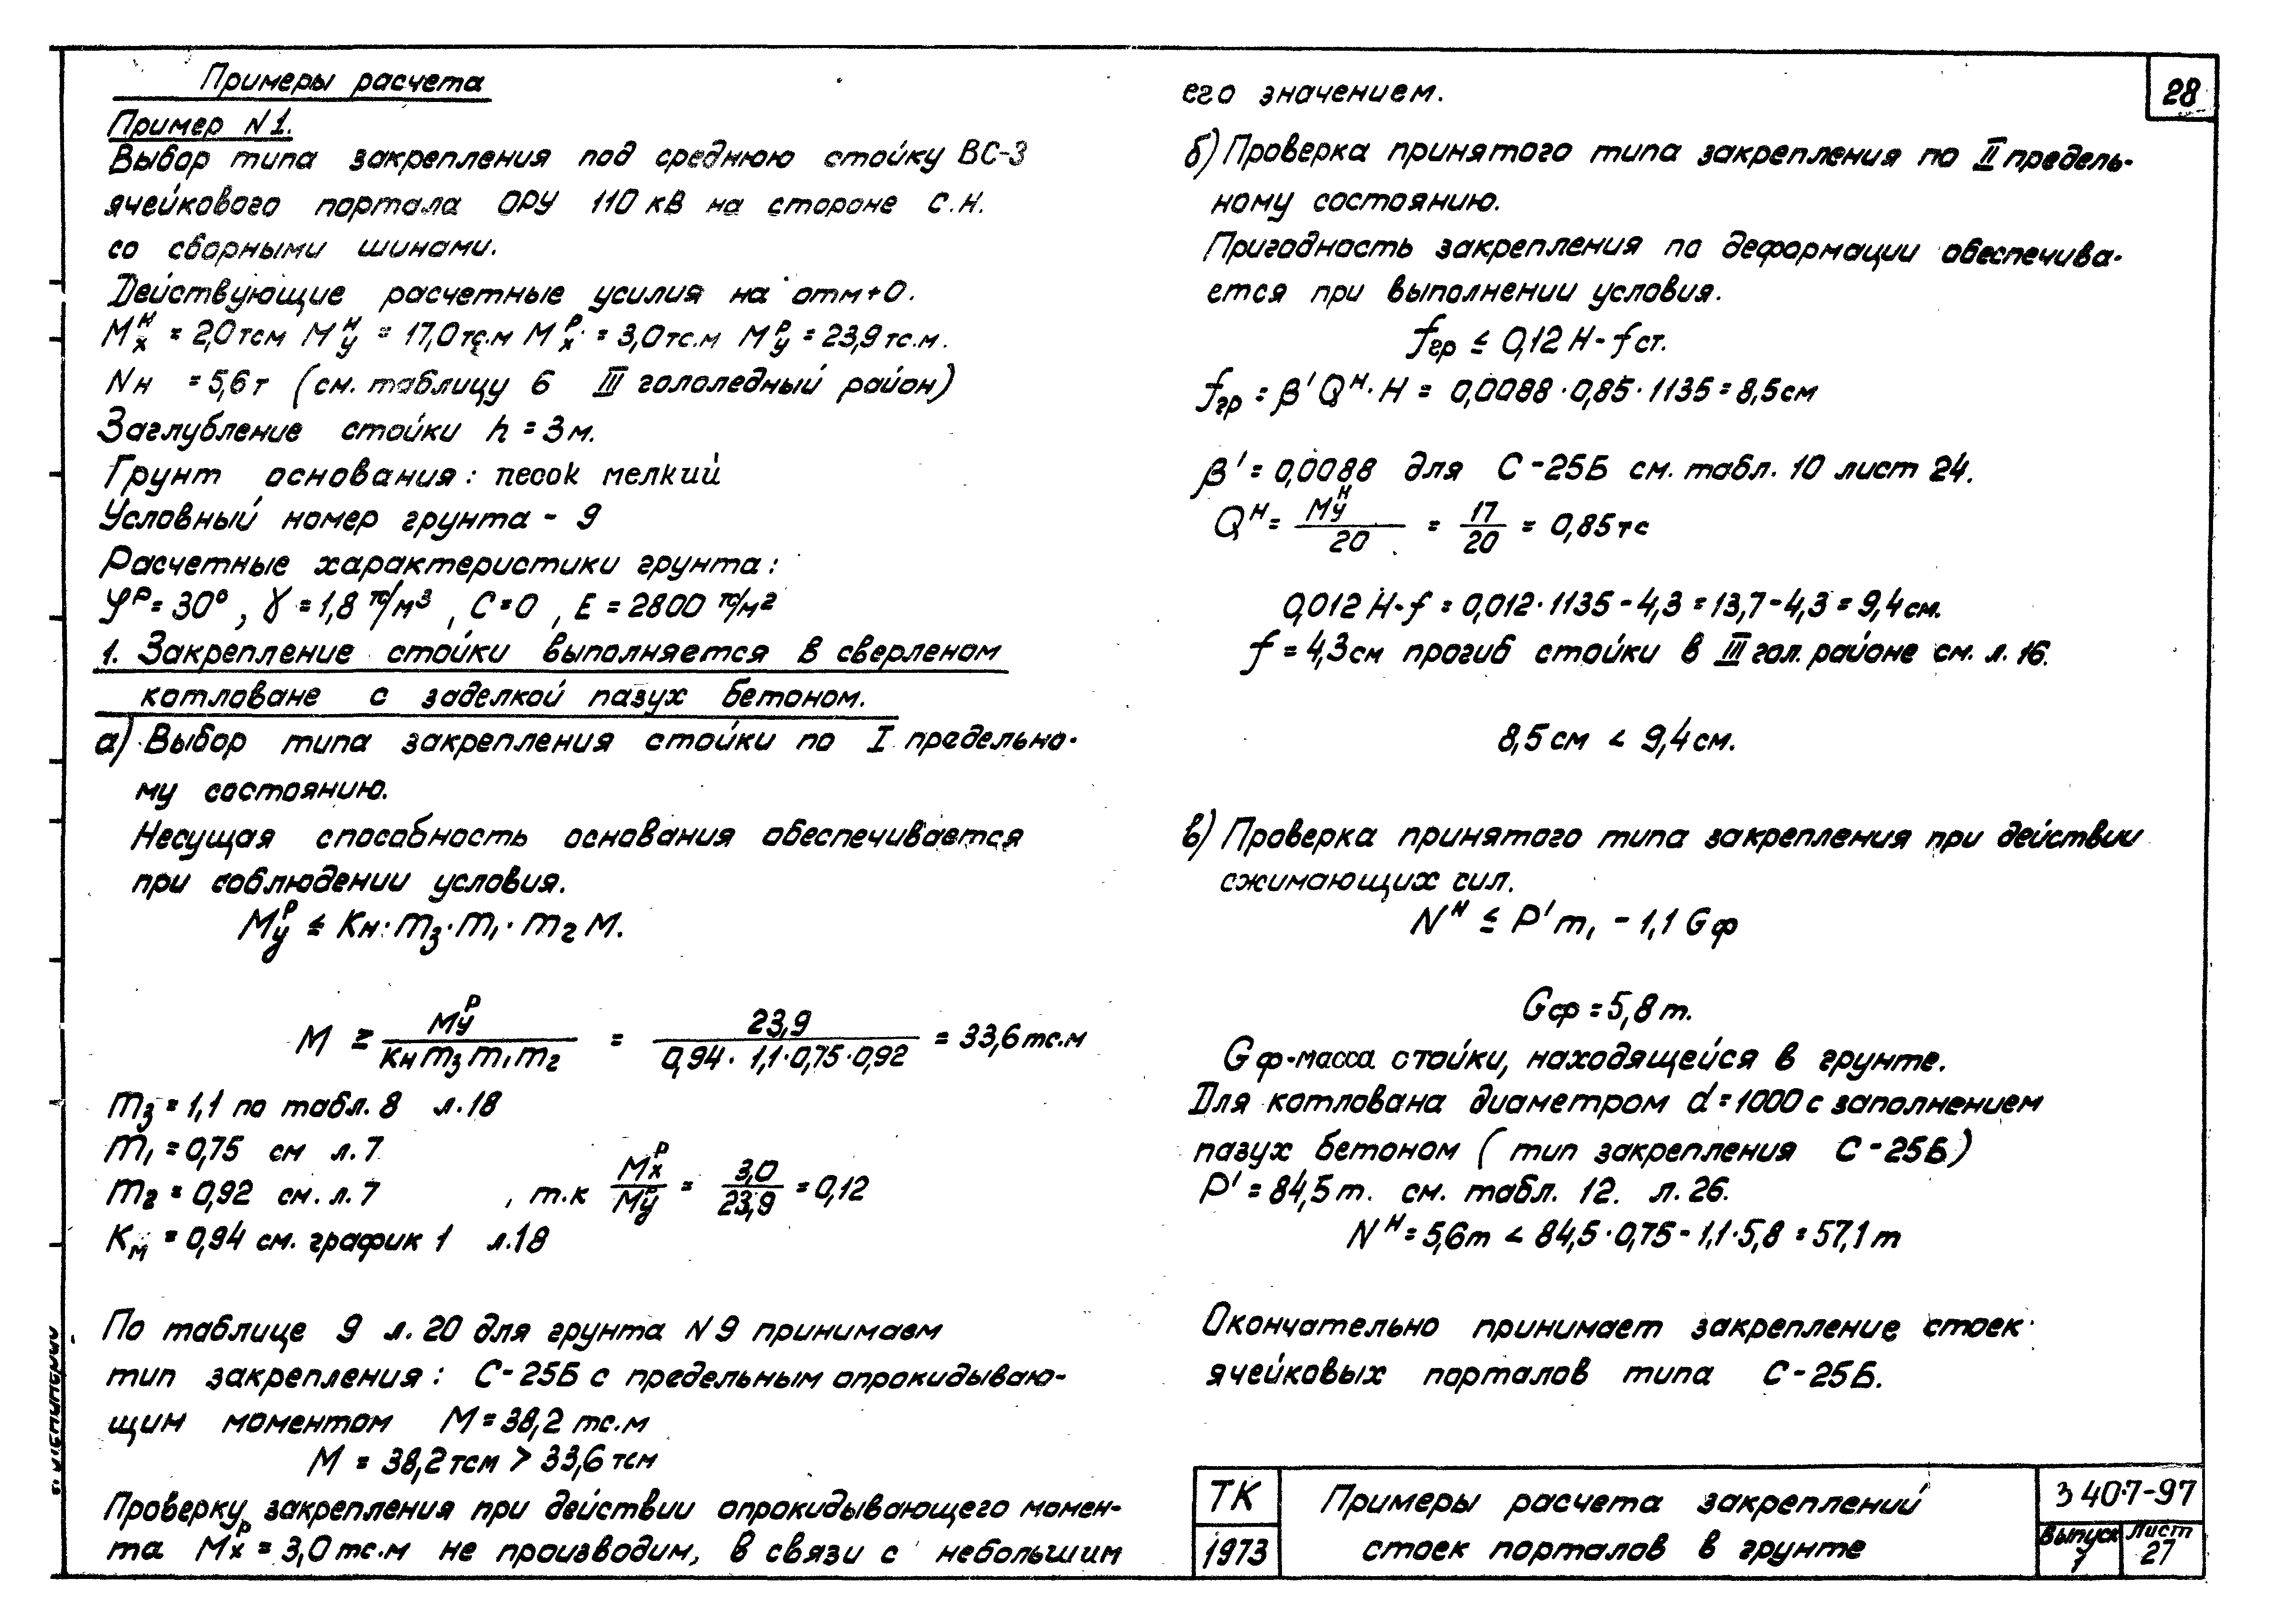 Примеры расчета
Пример N1.
Выбор типа закрепления под среднюю стойку ВС-3
ячейкового портала ОРУ 110 кВ на стороне С.Н.
со сборными шинами.
Действующие расчетные усилия на отм+0.
Mxᴴ = 2,0тсм Mуᴴ = 17,0тс.м Mxᴾ = 3,0тс.м Mуᴾ = 23,9тс.м.
Nн = 5,6т (см. таблицу 6 III гололедный район)
Заглубление стойки h = 3м.
Грунт основания: песок мелкий
Условный номер грунта - 9
Расчетные характеристики грунта:
φᴾ = 30°, γ = 1,8 тс/м³, C = 0, E = 2800 тс/м²
1. Закрепление стойки выполняется в сверленом
котловане с заделкой пазух бетоном.
а) Выбор типа закрепления стойки по I предельно-
му состоянию.
Несущая способность основания обеспечивается
при соблюдении условия.
Mуᴾ ≤ Kн·m₃·m₁·m₂ M.
M ≥ Mуᴾ / Kн m₃ m₁ m₂ = 23,9 / 0,94·1,1·0,75·0,92 = 33,6 тс.м
m₃ = 1,1 по табл. 8 л.18
m₁ = 0,75 см л.7
m₂ = 0,92 см. л.7, т.к Mxᴾ / Mуᴾ = 3,0 / 23,9 = 0,12
Kм = 0,94 см. график 1 л.18
По таблице 9 л. 20 для грунта N9 принимаем
тип закрепления: С-25Б с предельным опрокидываю-
щим моментом M = 38,2 тс.м
M = 38,2тсм > 33,6тсм
Проверку закрепления при действии опрокидывающего момен-
та Mxᴾ = 3,0тс.м не производим, в связи с небольшим
его значением.
28
б) Проверка принятого типа закрепления по II предель-
ному состоянию.
Пригодность закрепления по деформации обеспечива-
ется при выполнении условия.
fгр ≤ 0,12 H - f ст.
fгр = β' Qᴴ·H = 0,0088·0,85·1135 = 8,5см
β' = 0,0088 для С-25Б см. табл. 10 лист 24.
Qᴴ = Mуᴴ / 20 = 17 / 20 = 0,85тс
0,012 H-f = 0,012·1135-4,3 = 13,7-4,3 = 9,4см.
f = 4,3см прогиб стойки в III гол. районе см. л. 16.
8,5см < 9,4см.
в) Проверка принятого типа закрепления при действии
сжимающих сил.
Nᴴ ≤ P' m₁ - 1,1 Gф
Gф = 5,8т.
Gф-масса стойки, находящейся в грунте.
Для котлована диаметром d = 1000 с заполнением
пазух бетоном (тип закрепления С-25Б)
P' = 84,5т. см. табл. 12. л.26.
Nᴴ = 5,6т < 84,5·0,75-1,1·5,8 = 57,1т
Окончательно принимает закрепление стоек
ячейковых порталов типа С-25Б.
ТК
1973
Примеры расчета закреплений
стоек порталов в грунте
3 407-97
Выпуск 1
Лист 27